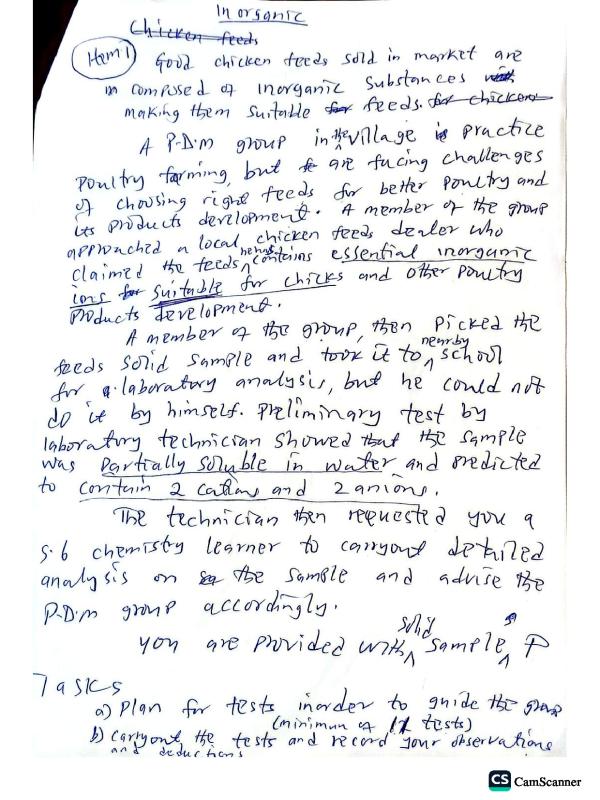 Inorganic
Chicken feeds
Item 1 Good chicken feeds sold in market are
composed of inorganic substances
making them suitable for feeds. for chicken
A P.D.M group in the village practice
Poultry farming, but are facing challenges
of choosing right feeds for better poultry and
its products development. A member of the group
approached a local chicken feeds dealer who
claimed the feeds contains essential inorganic
ions for suitable for chicks and other poultry
products development.
A member of the group, then picked the
feeds solid sample and took it to nearby school
for a laboratory analysis, but he could not
do it by himself. Preliminary test by
laboratory technician showed that the sample
was partially soluble in water and predicted
to contain 2 cations and 2 anions.
The technician then requested you a
S.6 chemistry learner to carryout detailed
analysis on the sample and advise the
P.D.M group accordingly.
you are provided with solid sample, P
Tasks
a) Plan for tests inorder to guide the group
(minimum of 12 tests)
b) carryout the tests and record your observations
and deductions
CS CamScanner